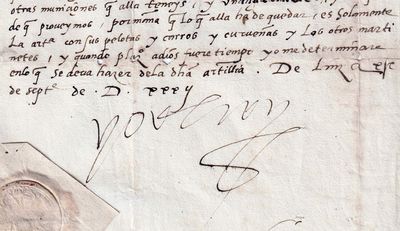 otras municiones q alla teneys, y
de q proveymos, por nra q lo q alla ha de quedar, es solamente
La arta con sus pelotas y carros y curueñas y Los otros marti
netes, y quando plaza adios fuere tiempo yo me determinare
en lo q se deva hazer dela dha artillia. De
de septe de D xxxv